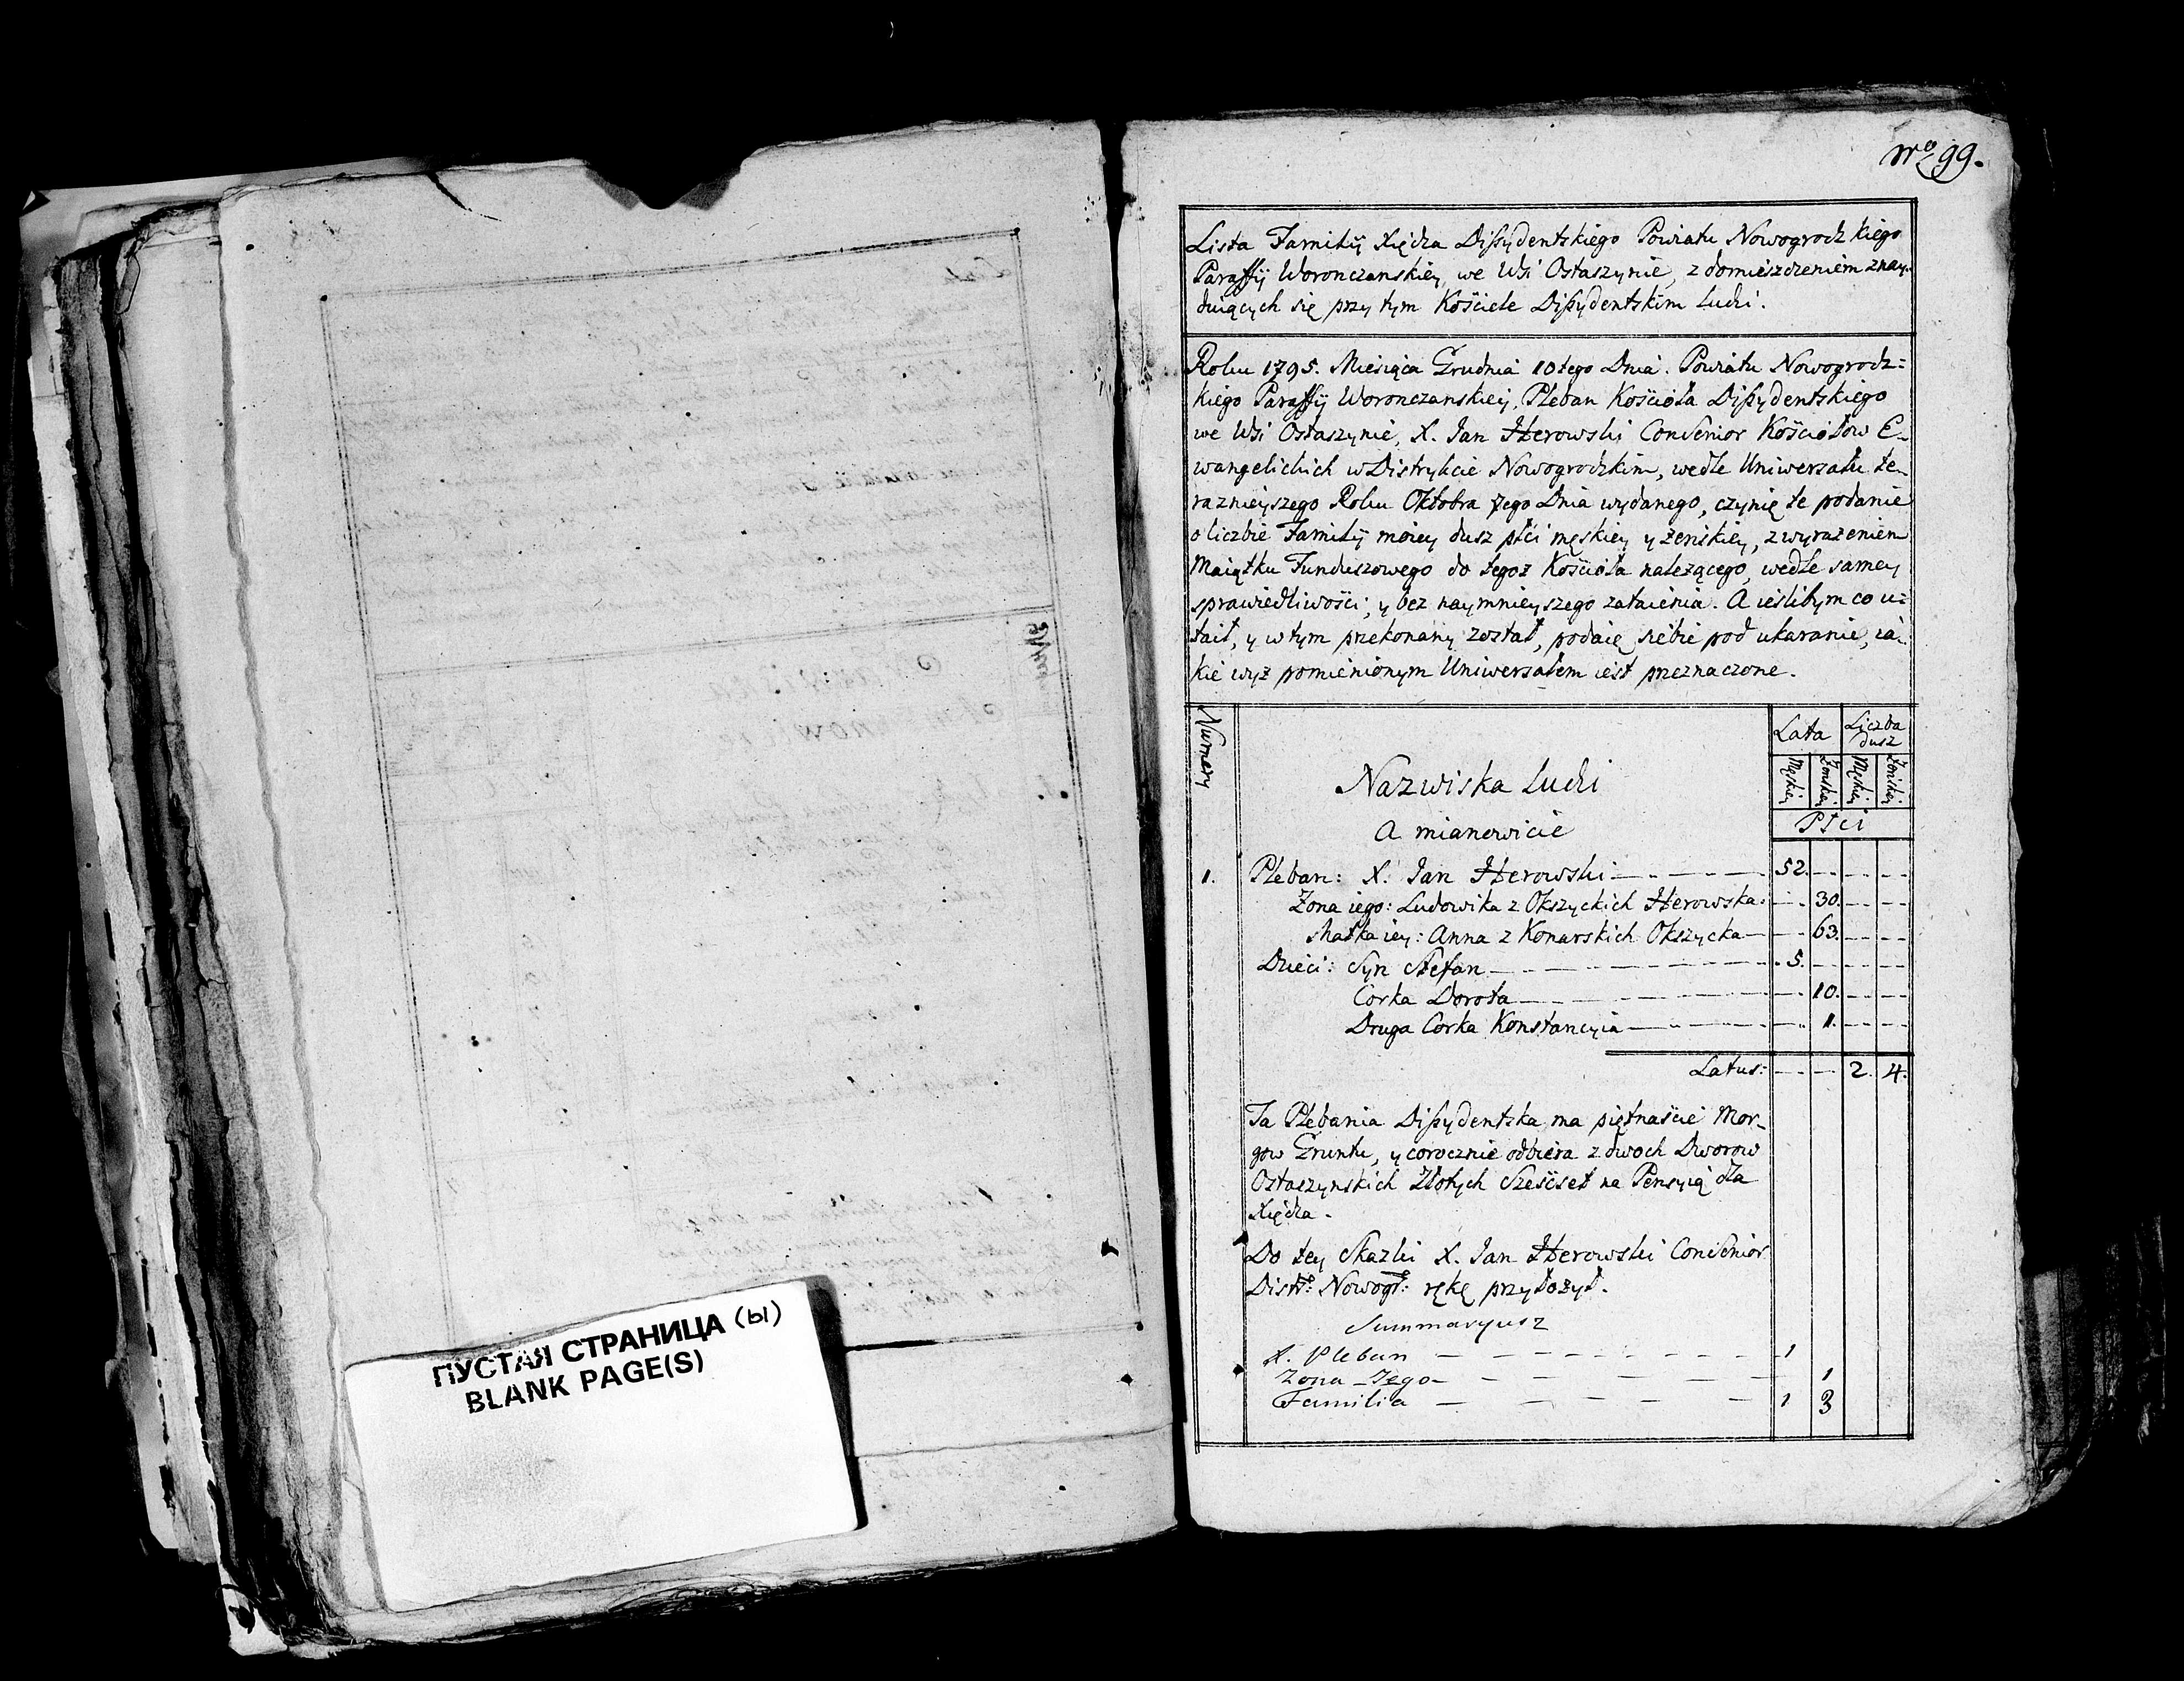 ПУСТАЯ СТРАНИЦА (Ы)
BLANK PAGE(S)
Nro 99.
Lista Familij Xiędza Dissydentskiego Powiatu Nowogrodzkiego
Paraffij Woronczanskiey, we Wsi Ostaszynie, z domieszczeniem znay-
duiących się przy tym Kościele Dissydentskim ludzi.
Roku 1795. Miesiąca Grudnia 10tego Dnia. Powiatu Nowogrodz=
kiego Paraffij Woronczanskiey, Pleban Kościoła Dissydentskiego
we Wsi Ostaszynie, X. Jan Herowski ConSenior Kościołow E-
wangelickich w Distrykcie Nowogrodzkim, wedle Uniwersału te-
raznieyszego Roku Oktobra 7ego Dnia wydanego, czynię te podanie
o liczbie Familij moiey dusz płci męskiey y żenskiey, z wyrażeniem
Maiątku Funduszowego do tegoż Kościoła należącego, wedle samey
sprawiedliwości, y bez naymnieyszego zataienia. A ieślibym co u=
taił, y w tym przekonany został, podaię siebie pod ukaranie, ia-
kie wyż pomienionym Uniwersałem iest przeznaczone.
Numery
Lata Liczba dusz
Męskiey Żenskiey Męskiey Żenskiey
Nazwiska ludzi
Płci
A mianowicie
1. Pleban: X. Jan Herowski 52.
Żona iego: Ludowika z Okszyckich Herowska. 30.
Matka iey: Anna z Konarskich Okszycka 63.
Dzieci: Syn Stefan 5.
Corka Dorota 10.
Druga Corka Konstancyia 1.
Latus: 2. 4.
Ta Plebania Dissydentska ma piętnaście Mor-
gow Gruntu, y corocznie odbiera z dwoch Dworow
Ostaszynskich Złotych Sześćset na Pensyią dla
Xiędza.
Do tey Skazki X. Jan Herowski ConSenior
Distr: Nowogr: rękę przyłożył.
Summaryusz
X. Pleban 1
Zona Jego 1
Familia 1 3